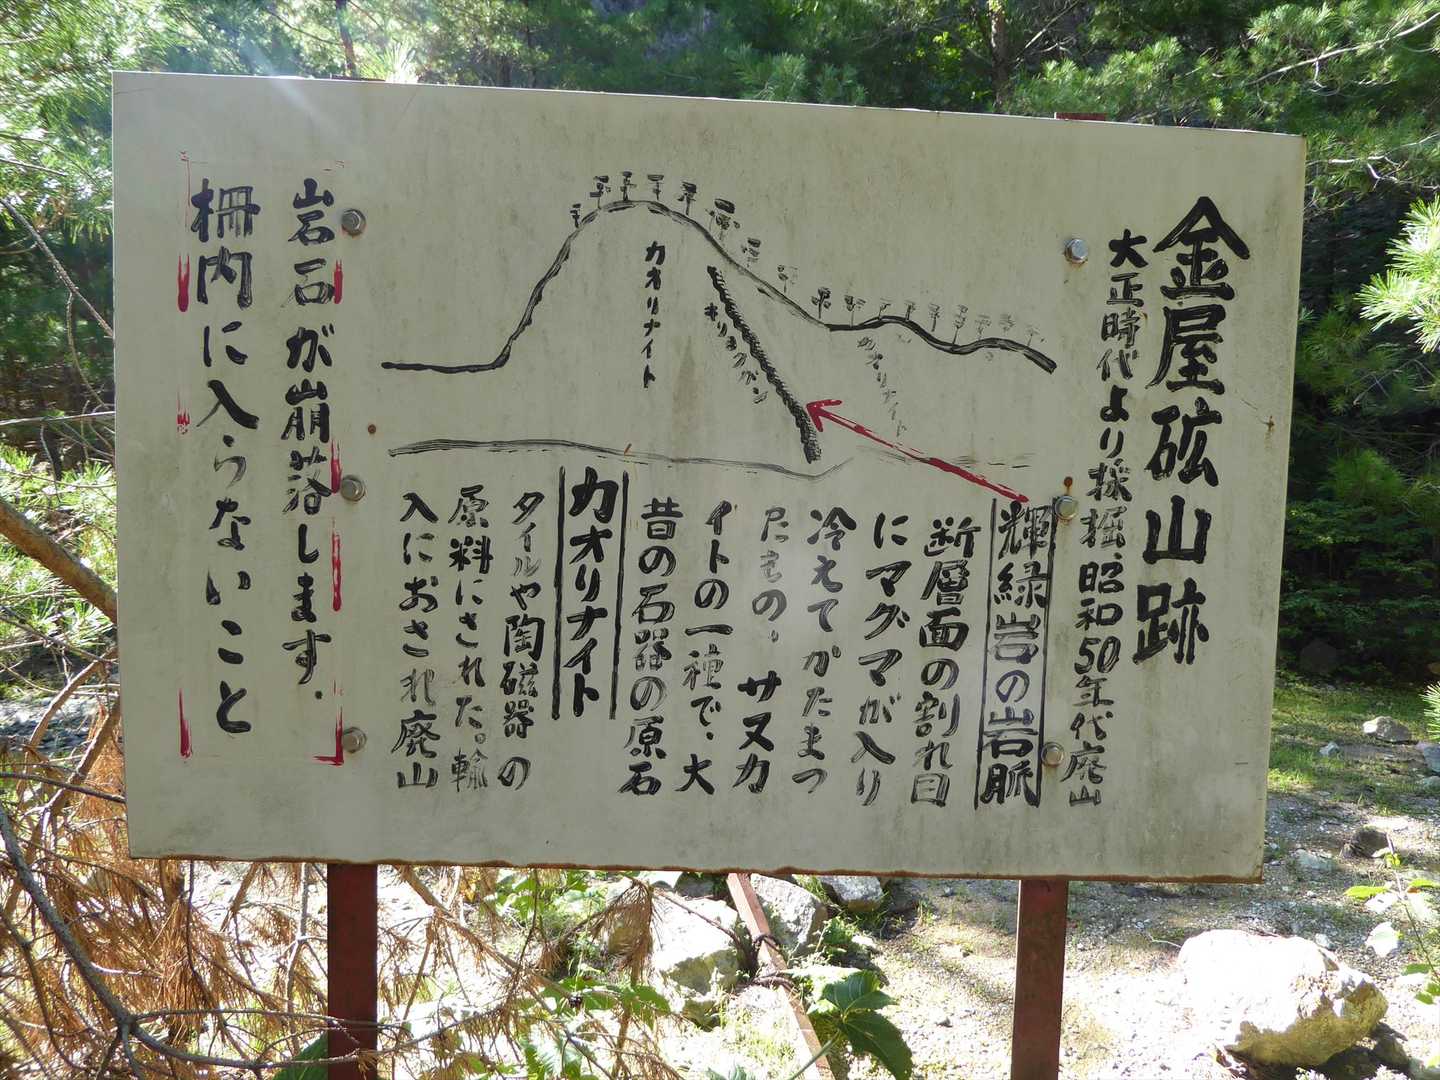 金屋砿山跡
大正時代より採掘、昭和50年代廃山
輝緑岩の岩脈
断層面の割れ目
にマグマが入り
冷えてかたまっ
たもの。サヌカ
イトの一種で、大
昔の石器の原石
カオリナイト
タイルや陶磁器の
原料にされた。輸
入におされ廃山
カオリナイト
キリョクガン
カオリナイト
岩石が崩落します.
柵内に入らないこと